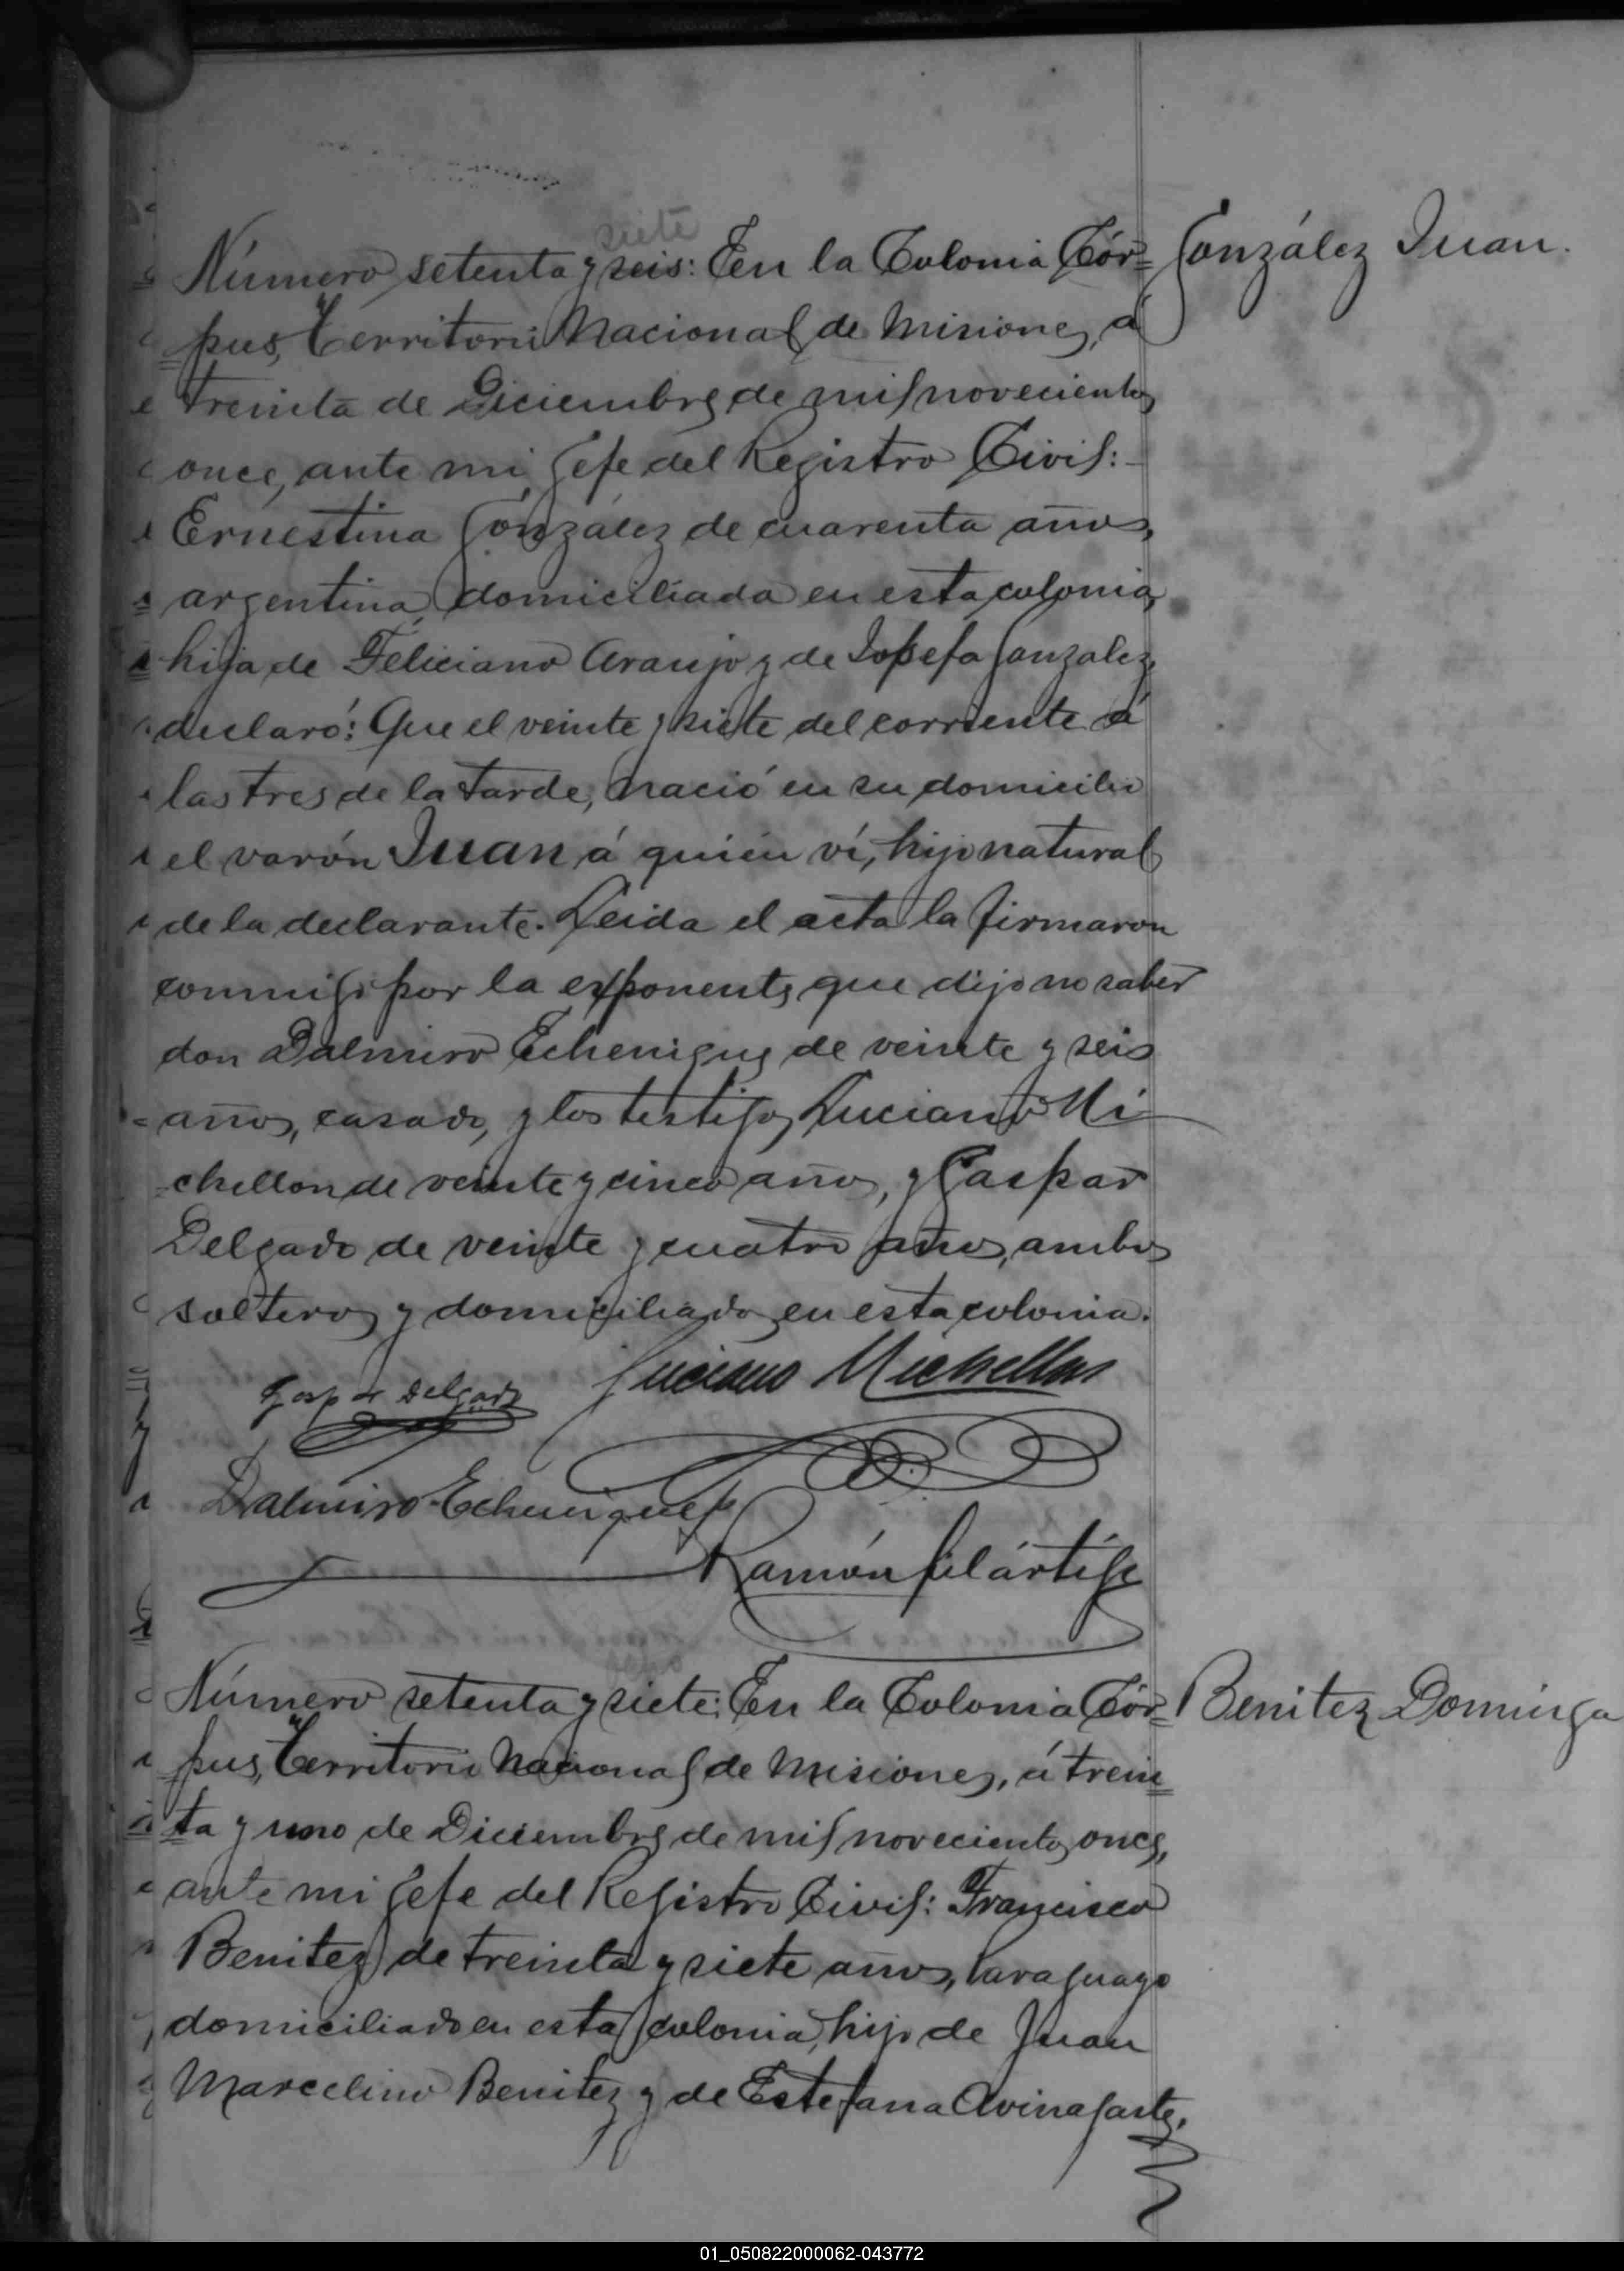 siete
Número setenta y seis: En la Colonia Cór=
González Juan.
pus, Territorio Nacional de Misiones, á
treinta de Diciembre de mil novecientos
once, ante mi Gefe del Registro Civil:-
Ernestina González de cuarenta años,
argentina, domiciliada en esta colonia,
hija de Feliciano Araujo y de Josefa Gonzalez,
declaró: Que el veinte y siete del corriente á
las tres de la tarde, nació en su domicilio
el varón Juan á quién ví, hijo natural
de la declarante. Leida el acta la firmaron
conmigo por la exponente, que dijo no saber
don Dalmiro Echenique de veinte y seis
años, casado, y los testigos Luciano Mi
chellon de veinte y cinco años, y Gaspar
Delgado de veinte y cuatro años, ambos
solteros y domiciliados en esta colonia.
Gaspar Delgado Luciano Michellon
Dalmiro Echenique
Ramón
Número setenta y siete: En la Colonia Cór=
Benitez Dominga
pus, Territorio Nacional de Misiones, á trein
=ta y uno de Diciembre de mil novecientos once,
ante mi Gefe del Registro Civil: Francisco
Benitez, de treinta y siete años, Paraguayo
domiciliado en esta colonia, hijo de Juan
Marcelino Benitez y de Estefana
01_050822000062-043772